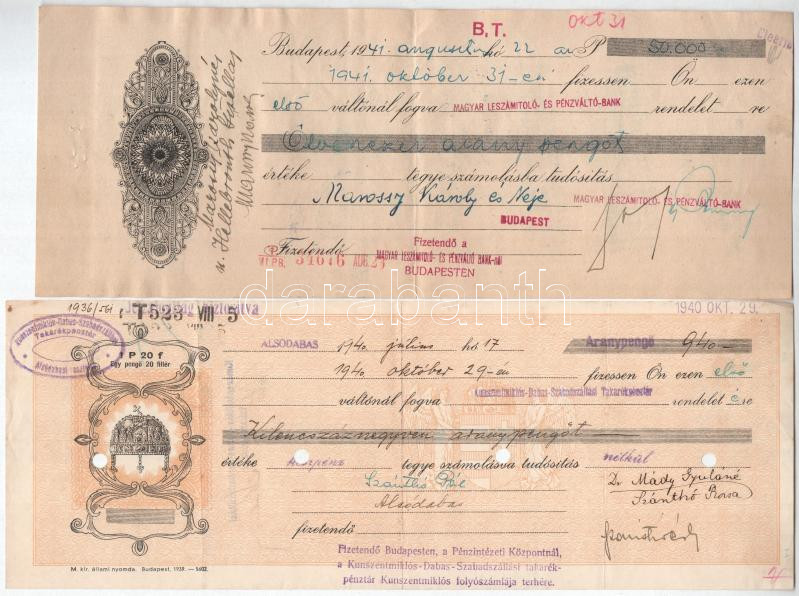 B.T.
OKT 31
Budapest, 1941. augusztus hó 22 án P 50.000
1941. október 31-én fizessen Ön ezen
első váltónál fogva MAGYAR LESZÁMITOLÓ- ÉS PÉNZVÁLTÓ-BANK rendelet re
Ötvenezer arany pengőt
értéke tegye számolásba tudósitás
Marossy Károly és Neje MAGYAR LESZÁMITOLÓ- ÉS PÉNZVÁLTÓ-BANK
BUDAPEST
Fizetendő a
Fizetendő MAGYAR LESZÁMITOLÓ- ÉS PÉNZVÁLTÓ BANK-nál
BUDAPESTEN
VI PR. 31676 AUG. 23
darabanth
1936/561
T523 VIII 5
1940 OKT. 29.
Kunszentmiklós-Dabas-Szabadszállási
Takarékpénztár
1 P 20 f
Egy pengő 20 fillér
ALSODABAS 1940 julius hó 17 Aranypengő 940
1940 október 29-én fizessen Ön ezen első
Kunszentmiklós-Dabas-Szabadszállási Takarékpénztár
váltónál fogva rendelet é re
Kilencszáznegyven aranypengőt
értéke készpénz tegye számolásva tudósitás nélkül
Szánthó Pál
Dr Mády Gyuláné
Alsódabas
Szánthó Rózsa
fizetendő
Fizetendő Budapesten, a Pénzintézeti Központnál,
a Kunszentmiklós-Dabas-Szabadszállási takarék-
pénztár Kunszentmiklós folyószámlája terhére.
M. kir. állami nyomda. Budapest, 1939. — 5602.